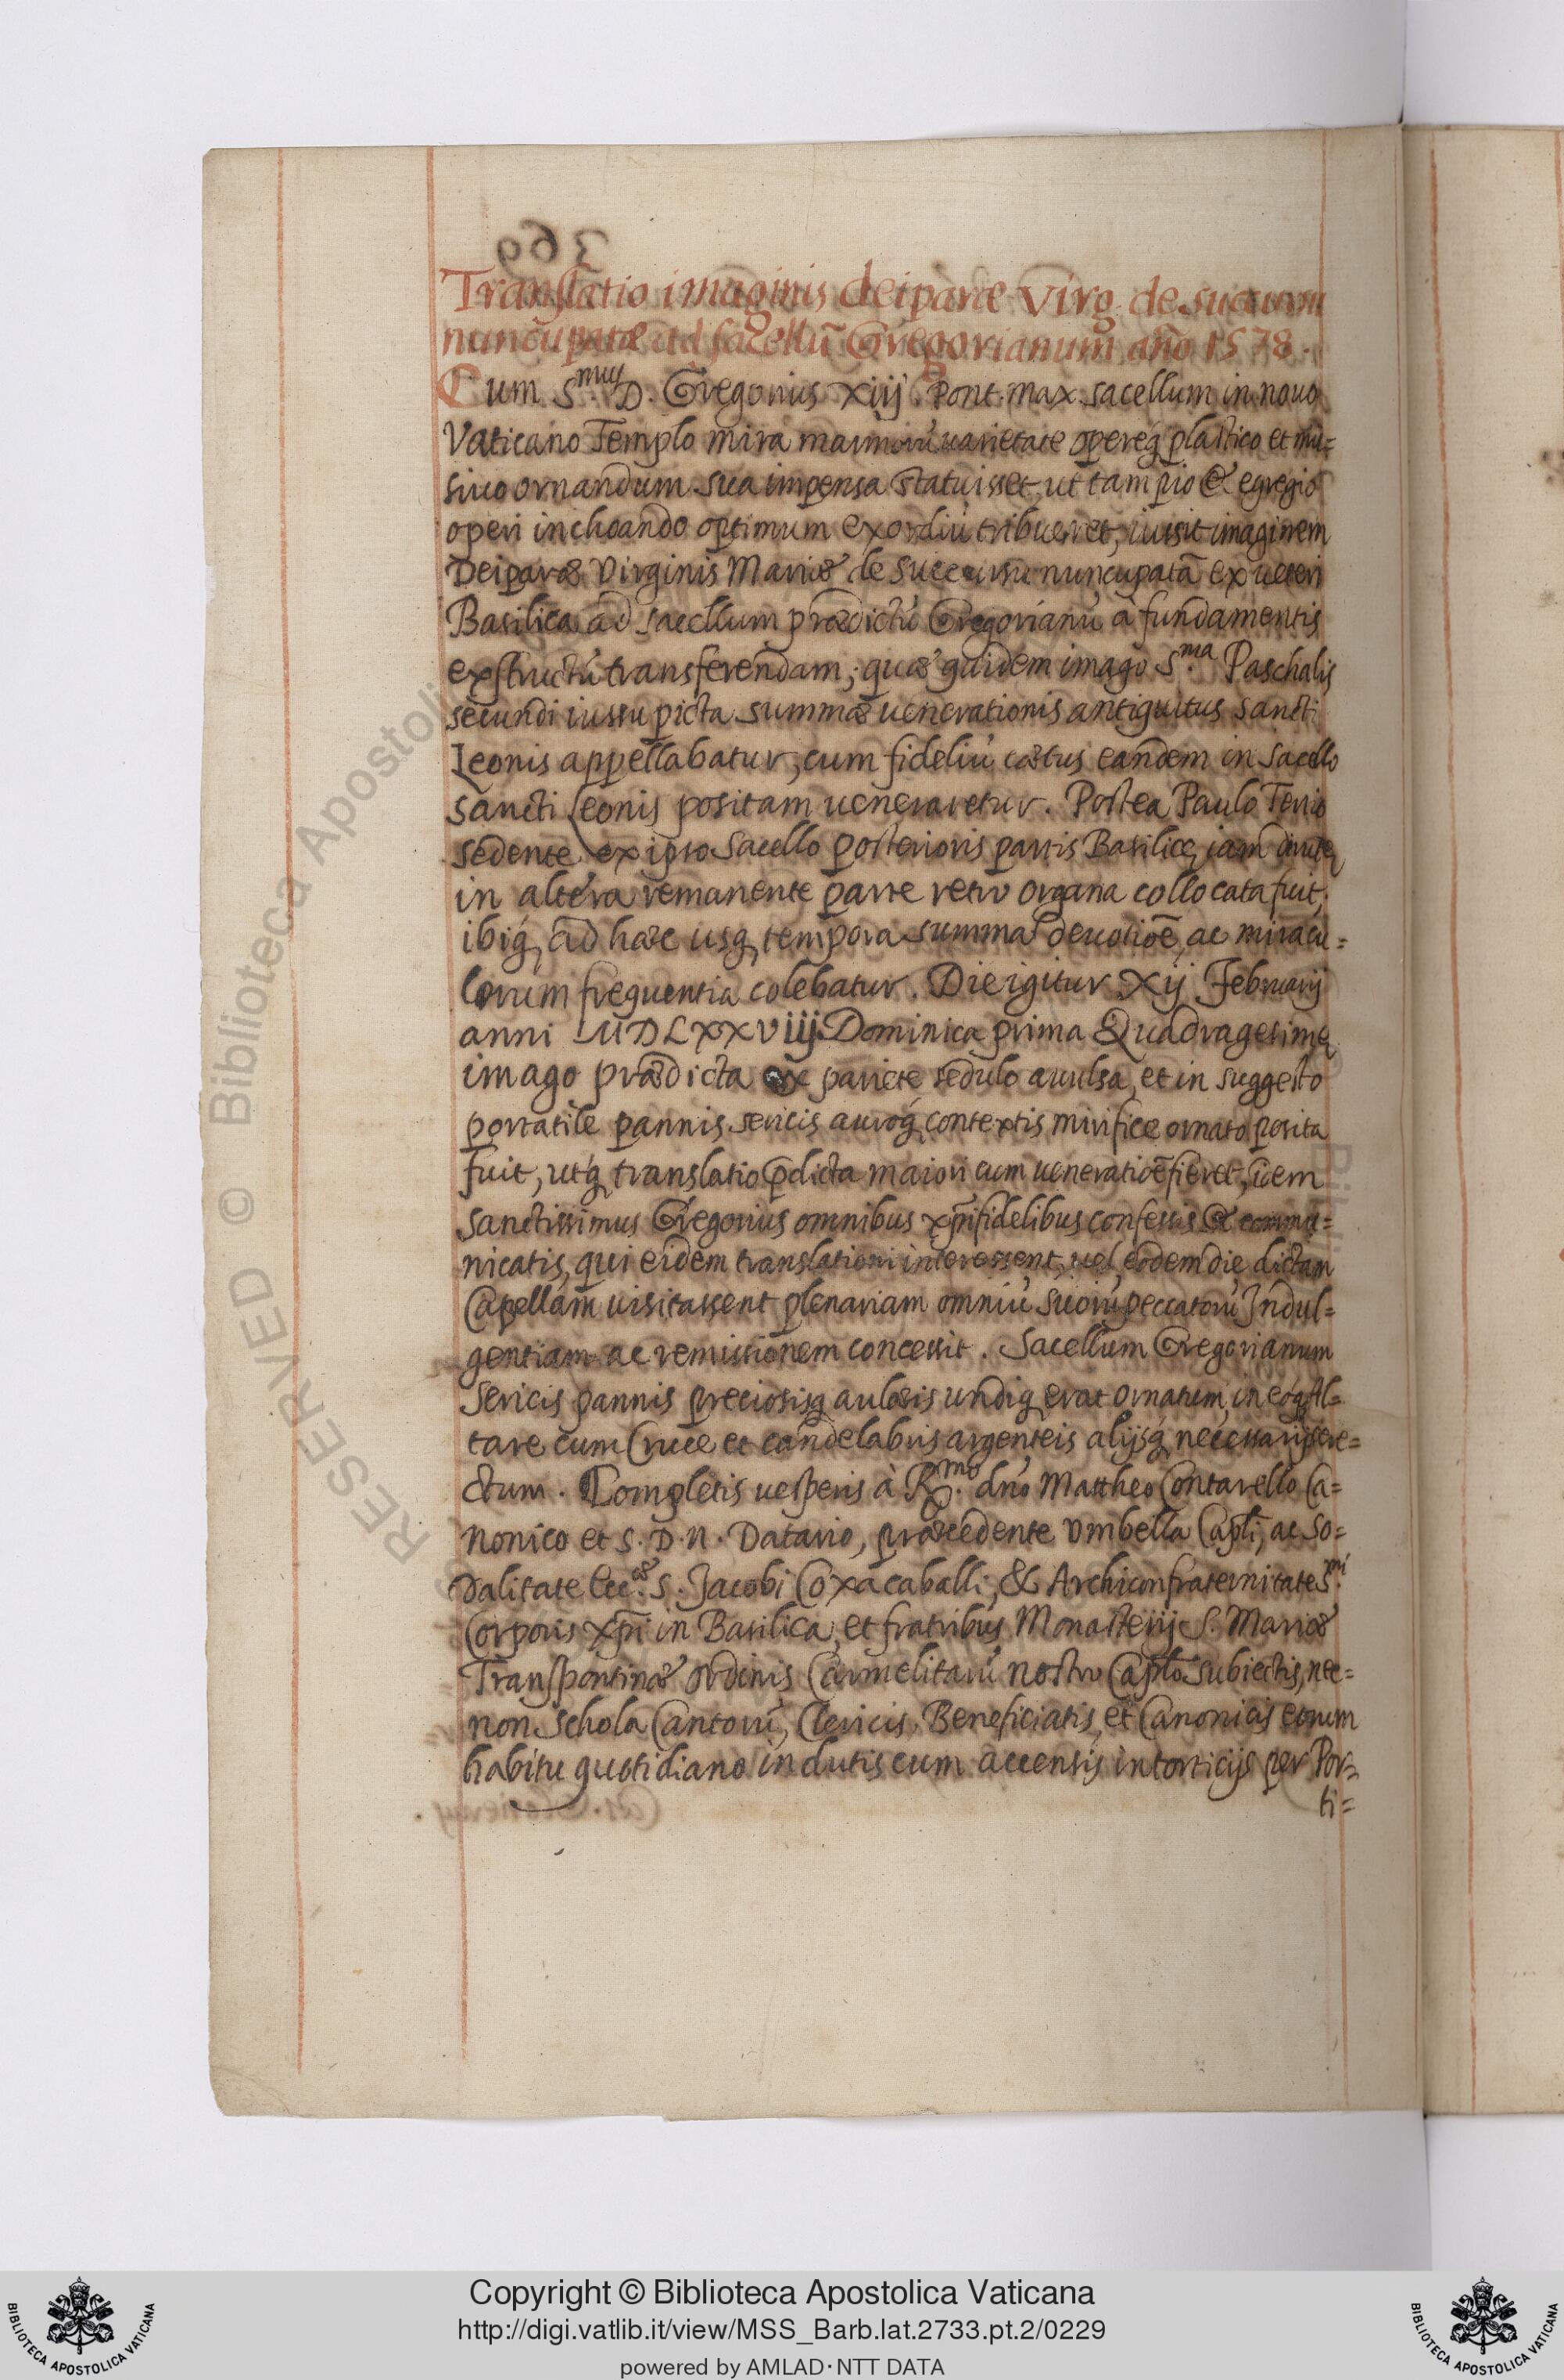 Translatio imaginis deiparæ Virg. de succursu
nuncupatæ ad sacellū Gregorianum año 1578.
Cum S.mus D. Gregorius xiij. Pont. max. sacellum in nouo
Vaticano Templo mira marmorū uarietate opereq; plastico et mu=
siuo ornandum sua impensa statuisset, ut tam pio & egregio
operi inchoando optimum exordiū tribueret, iussit imaginem
Deiparæ Virginis Mariæ de succursu nuncupatā ex ueteri
Basilica ad sacellum prædictū Gregorianū a fundamentis
exstructū transferendam; quæ quidem imago S.ma Paschalis
secundi iussu picta summæ uenerationis antiquitus sancti
Leonis appellabatur, cum fideliū cœtus eandem in sacello
sancti Leonis positam ueneraretur. Postea Paulo Tertio
sedente ex ipso sacello posterioris partis Basilicę iam dirutę
in altera remanente parte retro organa collocata fuit,
ibiq; ad hæc usq; tempora summa deuotiōe, ac miracu=
lorum frequentia colebatur. Die igitur xij Februarij
anni MDLXXViij Dominica prima Quadragesimę
imago prædicta ex pariete sedulo auulsa, et in suggesto
portatile pannis sericis auroq; contextis mirifice ornato posita
fuit, utq; translatio p̄dicta maiori cum ueneratiōe fieret, idem
Sanctissimus Gregorius omnibus xp̄ifidelibus confessis & commu=
nicatis, qui eidem translationi interessent, uel eodem die dictam
Capellam uisitassent plenariam omniū suorū peccatorū Indul=
gentiam ac remissionem concessit. Sacellum Gregorianum
Sericis pannis preciosisq; aulæis undiq; erat ornatum, in eoq; Al=
tare cum Cruce et candelabris argenteis alijsq; necessarijs ere=
ctum. Completis uesperis à R.mo dn̄o Mattheo Contarello Ca=
nonico et S. D. N. Datario, præcedente Vmbella Capli, ac So=
dalitate Ecc.æ S. Jacobi Coxacaballi, & Archiconfraternitate S.mi
Corporis Xp̄i in Basilica, et fratribus Monasterij S. Mariæ
Transpontinæ ordinis Carmelitarū nostro Capl̄o subiectis, nec=
non Schola Cantorū, Clericis, Beneficiatis, et Canonicis eorum
habitu quotidiano indutis cum accensis intorticijs per Por=
ti=
369
RESERVED © Biblioteca Apostoli
Copyright © Biblioteca Apostolica Vaticana
http://digi.vatlib.it/view/MSS_Barb.lat.2733.pt.2/0229
powered by AMLAD·NTT DATA
BIBLIOTECA APOSTOLICA VATICANA
BIBLIOTECA APOSTOLICA VATICANA